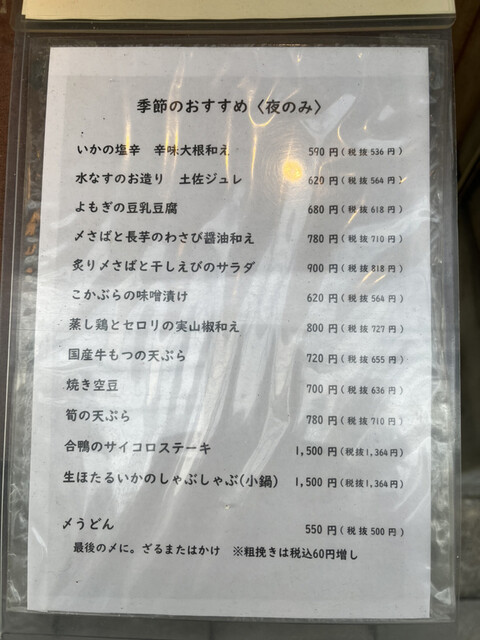 季節のおすすめ〈夜のみ〉
いかの塩辛　辛味大根和え 590円(税抜536円)
水なすのお造り　土佐ジュレ 620円(税抜564円)
よもぎの豆乳豆腐 680円(税抜618円)
〆さばと長芋のわさび醤油和え 780円(税抜710円)
炙り〆さばと干しえびのサラダ 900円(税抜818円)
こかぶらの味噌漬け 620円(税抜564円)
蒸し鶏とセロリの実山椒和え 800円(税抜727円)
国産牛もつの天ぷら 720円(税抜655円)
焼き空豆 700円(税抜636円)
筍の天ぷら 780円(税抜710円)
合鴨のサイコロステーキ 1,500円(税抜1,364円)
生ほたるいかのしゃぶしゃぶ(小鍋) 1,500円(税抜1,364円)
〆うどん 550円(税抜500円)
最後の〆に。ざるまたはかけ　※粗挽きは税込60円増し